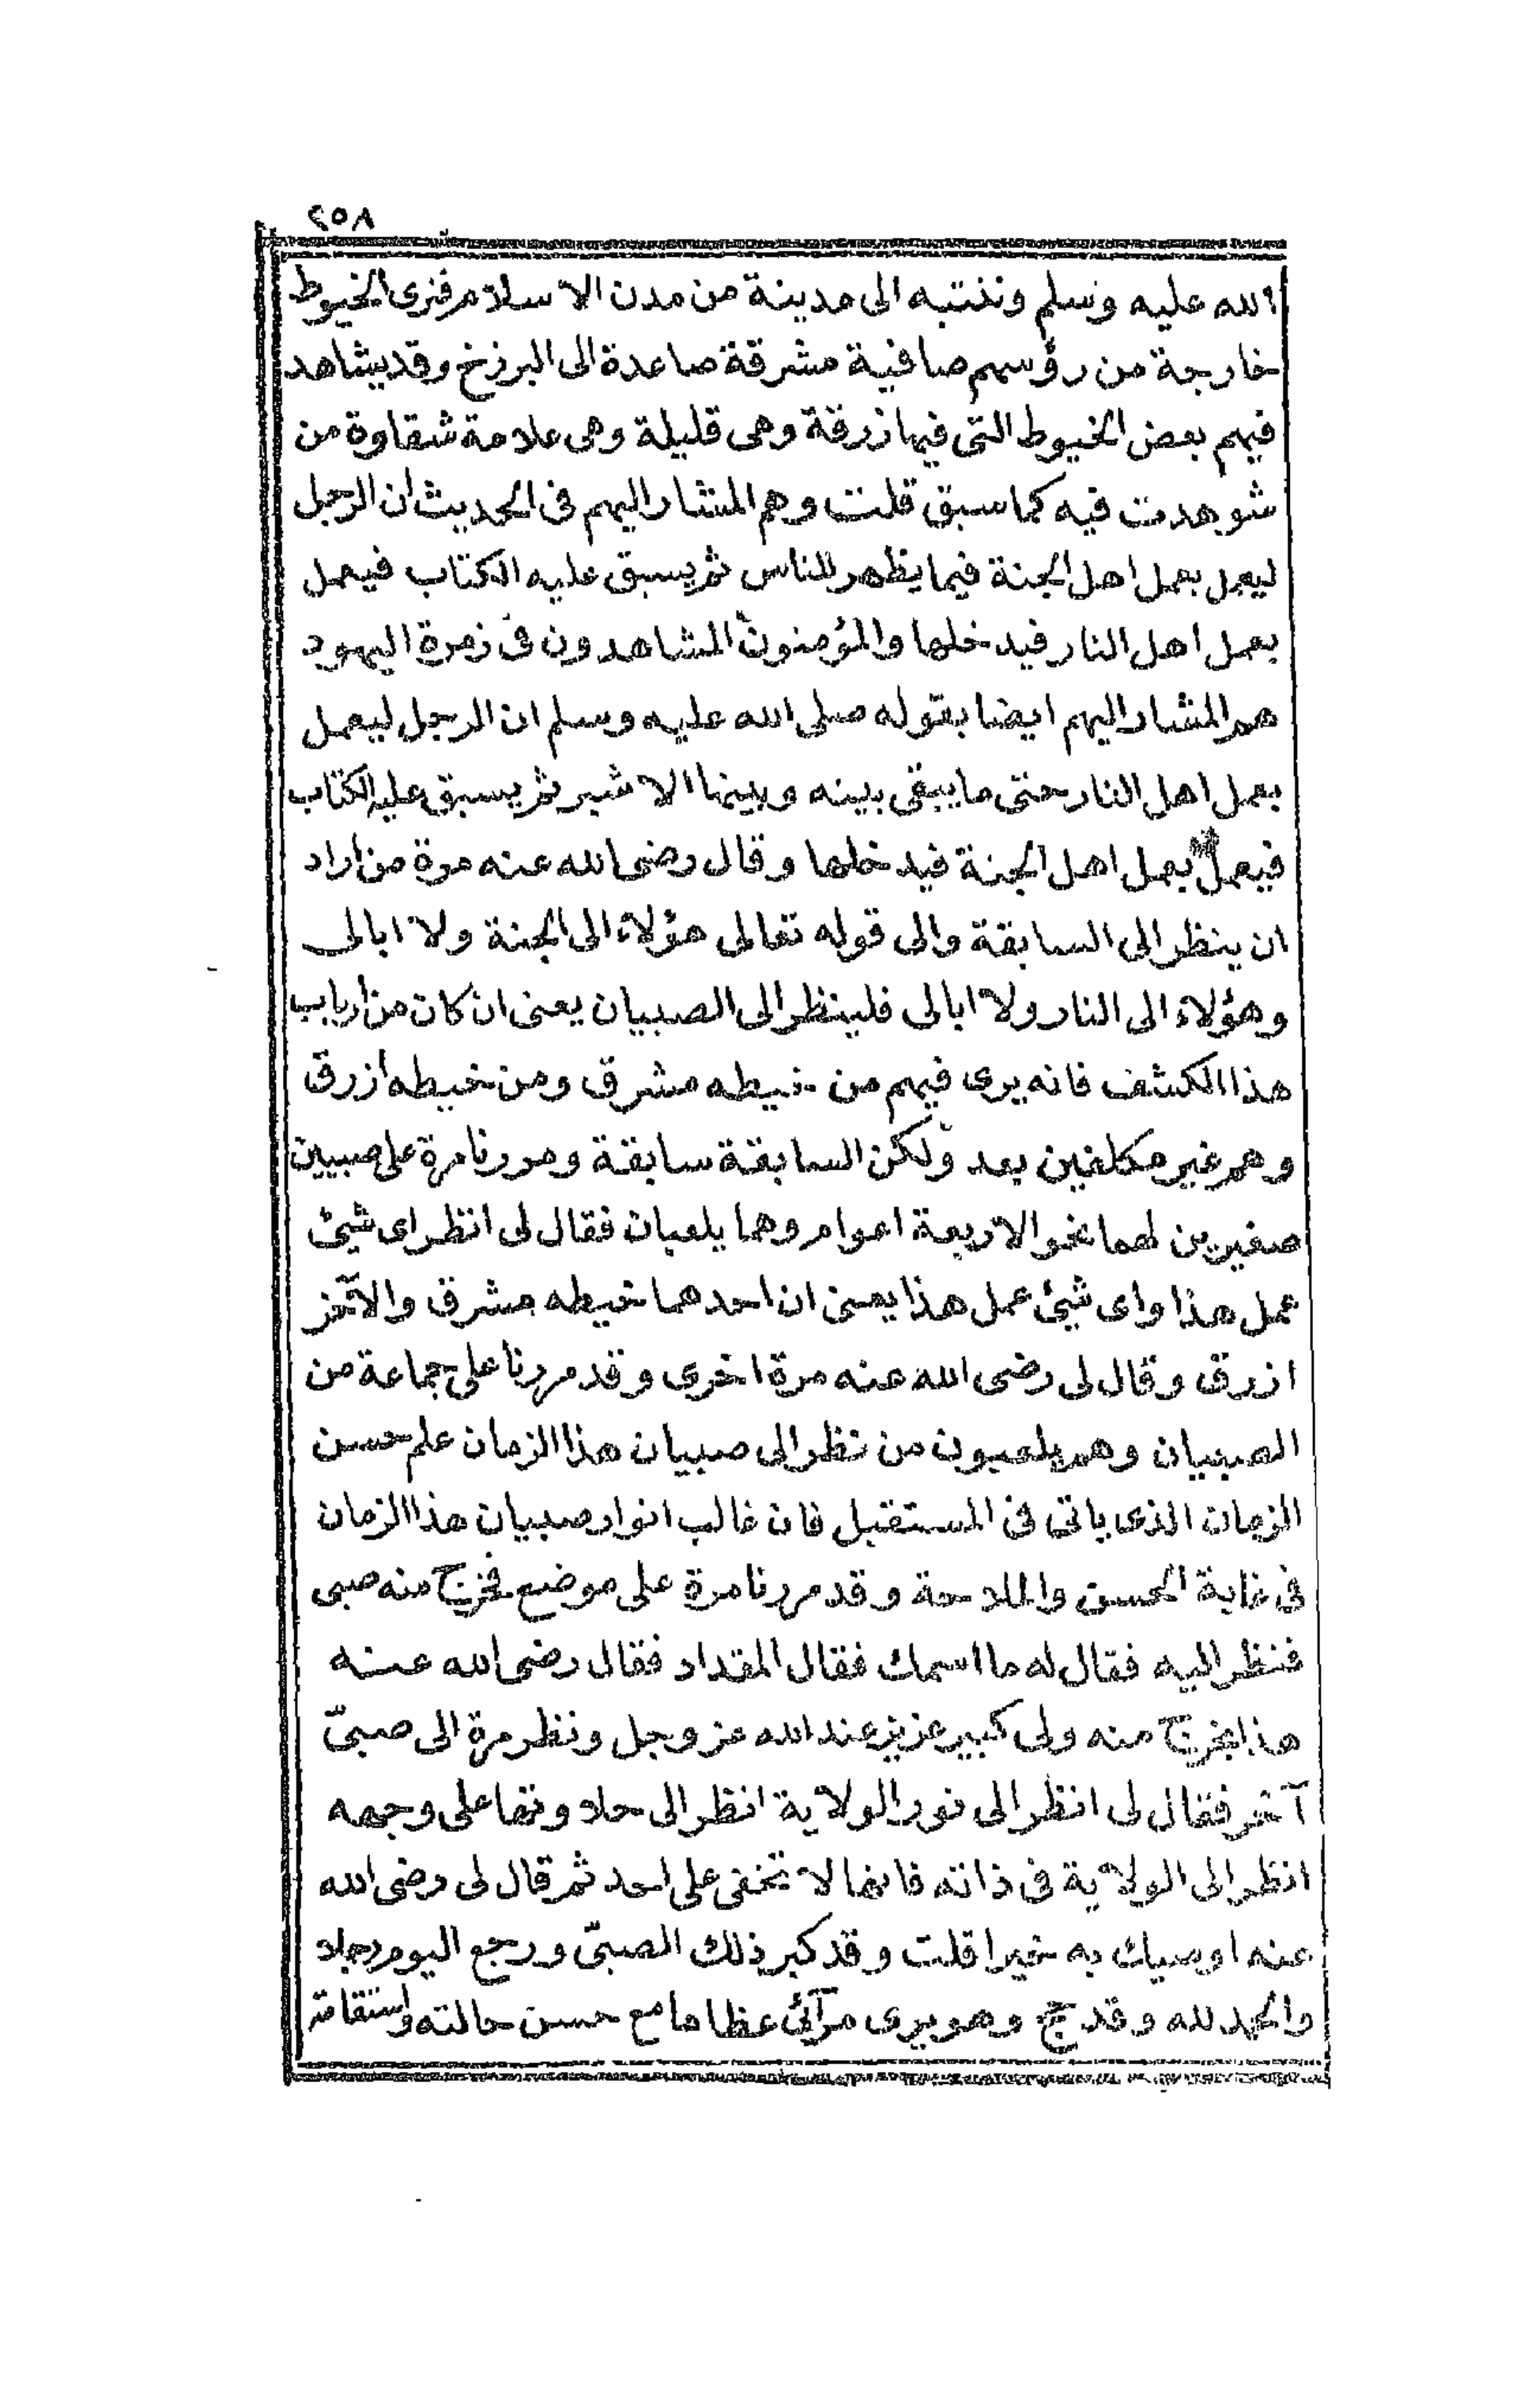 ٢٥٨
الله عليه وسلم ونذتبه الى مدينة من مدن الاسلام فنرى الخيوط
خارجة من رؤسهم صافية مشرقة صاعدة الى البرزخ وقد يشاهد
فيهم بعض الخيوط التى فيها زرقة وهى قليلة وهى علامة شقاوة من
شوهدت فيه كما سبق قلت وهم المشار اليهم فى الحديث ان الرجل
ليعمل بعمل اهل الجنة فيما يظهر للناس ثم يسبق عليه الكتاب فيعمل
بعمل اهل النار فيدخلها والمؤمنون المشاهدون فى زمرة اليهود
هم المشار اليهم ايضا بقوله صلى الله عليه وسلم ان الرجل ليعمل
بعمل اهل النار حتى ما يبقى بينه وبينها الا شبر ثم يسبق عليه الكتاب
فيعمل بعمل اهل الجنة فيدخلها وقال رضى الله عنه مرة من اراد
ان ينظر الى السابقة والى قوله تعالى هؤلاء الى الجنة ولا ابالى
وهؤلاء الى النار ولا ابالى فلينظر الى الصبيان يعنى ان كان من ارباب
هذا الكشف فانه يرى فيهم من خيطه مشرق ومن خيطه ازرق
وهم غير مكلفين بعد ولكن السابقة سابقة ومررنا مرة على صبيين
صغيرين لهما نحو الاربعة اعوام وهما يلعبان فقال لى انظر اى شيئ
عمل هذا واى شيئ عمل هذا يعنى ان احدهما خيطه مشرق والآخر
ازرق وقال لى رضى الله عنه مرة اخرى وقد مررنا على جماعة من
الصبيان وهم يلعبون من نظر الى صبيان هذا الزمان علم حسن
الزمان الذى ياتى فى المستقبل فان غالب انوار صبيان هذا الزمان
فى غاية الحسن والملاحة وقد مررنا مرة على موضع فخرج منه صبى
فنظر اليه فقال له ما اسمك فقال المقداد فقال رضى الله عنه
هذا يخرج منه ولى كبير عزيز عند الله عز وجل ونظر مرة الى صبىّ
آخر فقال لى انظر الى نور الولاية انظر الى حلاوتها على وجهه
انظر الى الولاية فى ذاته فانها لا تخفى على احد ثم قال لى رضى الله
عنه اوصيك به خيرا قلت وقد كبر ذلك الصبىّ ورجع اليوم رجلا
والحمد لله وقد حج وهو يرى مرآئى عظاما مع حسن حالته واستقامة